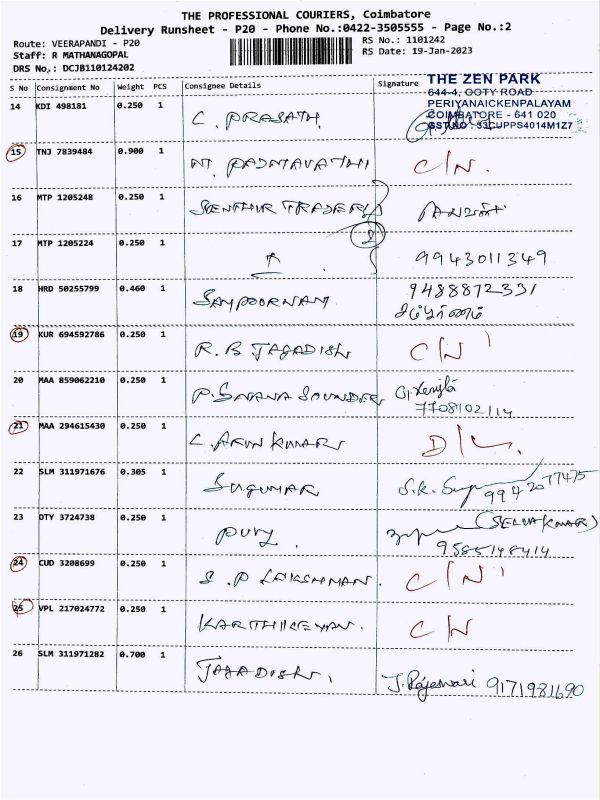 THE PROFESSIONAL COURIERS, Coimbatore
Delivery Runsheet - P20 - Phone No.:0422-3505555 - Page No.:2
Route: VEERAPANDI - P20
Staff: R MATHANAGOPAL
DRS No.: DCJB110124202
RS No.: 1101242
RS Date: 19-Jan-2023
S No Consignment No Weight PCS Consignee Details Signature
THE ZEN PARK
644-4, OOTY ROAD
PERIYANAICKENPALAYAM
COIMBATORE - 641 020
GSTNO : 33CUPPS4014M1Z7
14 KDI 498181 0.250 1 C. PRASATH.
15 TNJ 7839484 0.900 1 M. PADMAVATHI C/N.
16 MTP 1205248 0.250 1 SENTHUR TRADERS
17 MTP 1205224 0.250 1 9943011349
18 HRD 50255799 0.460 1 SAMPOORNAM 9488872331
சம்பூர்ணம்
19 KUR 694592786 0.250 1 R. B JAGADISH C/N
20 MAA 859062210 0.250 1 P. SARANA SOUNDER
7708102114
21 MAA 294615430 0.250 1 C. ARUN KUMAR D/L.
22 SLM 311971676 0.305 1 SUGUMAR S.K. 9942077475
23 DTY 3724738 0.250 1 (SELVAKUMAR)
9585148414
24 CUD 3208699 0.250 1 S. P LAKSHMAN. C/N
25 VPL 217024772 0.250 1 KARTHIKEYAN. C/N
26 SLM 311971282 0.700 1 JAGADISH. J. Rajeswari 9171981690